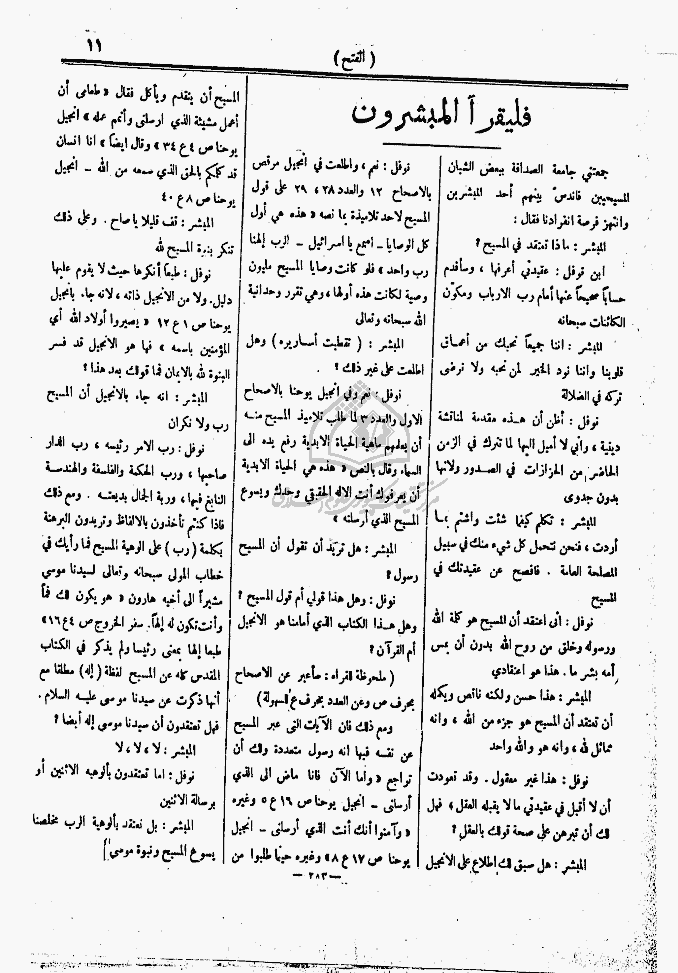 ١١
( الفتح )
فليقرأ المبشرون
جمعتني جامعة الصداقة ببعض الشبان
المسيحيين فاندس بينهم أحد المبشرين
وانتهز فرصة انفرادنا فقال :
المبشر : ماذا تعتقد في المسيح ؟
ابن نوفل : عقيدتي أعرفها ، وسأقدم
حساباً صحيحاً عنها أمام رب الارباب ومكوّن
الكائنات سبحانه
المبشر : اننا جميعاً نحبك من أعماق
قلوبنا واننا نود الخير لمن نحبه ولا نرضى
تركه في الضلالة
نوفل : أظن أن هذه مقدمة لمناقشة
دينية ، وأني لا أميل اليها لما تترك في الزمن
الحاضر من الحزازات في الصدور ولانها
بدون جدوى
المبشر : تكلم كيفما شئت واشتم بما
أردت ، فنحن نتحمل كل شيء منك في سبيل
المصلحة العامة . فافصح عن عقيدتك في
المسيح
نوفل : أنى أعتقد أن المسيح هو كلمة الله
ورسوله وخلق من روح الله بدون أن يمس
أمه بشر ما . هذا هو اعتقادي
المبشر : هذا حسن ولكنه ناقص ويكمله
أن تعتقد أن المسيح هو جزء من الله ، وانه
مماثل لله ، وانه هو والله واحد
نوفل : هذا غير معقول . وقد تعودت
أن لا أقبل في عقيدتي ما لا يقبله العقل ، فهل
لك أن تبرهن على صحة قولك بالعقل ؟
المبشر : هل سبق لك إطلاع على الانجيل
نوفل : نعم ، واطلعت في انجيل مرقص
بالاصحاح ١٢ والعدد ٢٨ ، ٢٩ على قول
المسيح لاحد تلاميذة بما نصه « هذه هي أول
كل الوصايا ــ اسمع يا اسرائيل ــ الرب إلهنا
رب واحد » فلو كانت وصايا المسيح مليون
وصية لكانت هذه أولها ، وهي تقرر وحدانية
الله سبحانه وتعالى
المبشر : ( تقطبت أساريره ) وهل
اطلعت على غير ذلك ؟
نوفل : نعم وفي انجيل يوحنا بالاصحاح
الاول والعدد ٣ لما طلب تلاميذ المسيح منه
أن يعلمهم ماهية الحياة الابدية رفع يده الى
السماء وقال بالنص « هذه هي الحياة الابدية
أن يعرفوك أنت الاله الحقيقي وحدك ويسوع
المسيح الذي أرسلته »
المبشر : هل تريد أن تقول أن المسيح
رسول ؟
نوفل : وهل هذا قولي أم قول المسيح ؟
وهل هذا الكتاب الذي أمامنا هو الانجيل
أم القرآن ؟
( ملحوظة القراء : سأعبر عن الاصحاح
بحرف ص وعن العدد بحرف ع للسهولة )
ومع ذلك فان الآيات التى عبر المسيح
عن نفسه فيها انه رسول متعددة ولك أن
تراجع « وأما الآن فانا ماض الى الذي
أرسلنى ــ انجيل يوحنا ص ١٦ ع ٥ وغيره
« وآمنوا أنك أنت الذي أرسلنى ــ انجيل
يوحنا ص ١٧ ع ٨ » وغيره حينما طلبوا من
المسيح أن يتقدم ويأكل فقال « طعامى أن
أعمل مشيئة الذي ارسلنى وأتمم عمله » انجيل
يوحنا ص ٤ ع ٣٤ » وقال ايضا « انا انسان
قد كلمكم بالحق الذي سمعه من الله ــ انجيل
يوحنا ص ٨ ع ٤٠
المبشر : قف قليلا ياصاح . وعلى ذلك
تنكر بنوة المسيح لله
نوفل : طبعاً أنكرها حيث لا يقوم عليها
دليل . ولا من الانجيل ذاته ، لانه جاء بانجيل
يوحنا ص ١ ع ١٢ « يصيروا أولاد الله أي
المؤمنين باسمه » فها هو الانجيل قد فسر
البنوة لله بالايمان فما قولك بعد هذا ؟
المبشر : انه جاء بالانجيل أن المسيح
رب ولا نكران
نوفل : رب الامر رئيسه ، رب الدار
صاحبها ، ورب الحكمة والفلسفة والهندسة
النابغ فيها ، وربة الجمال بديعته . ومع ذلك
فاذا كنتم تأخذون بالالفاظ وتريدون البرهنة
بكلمة ( رب ) على الوهية المسيح فما رأيك في
خطاب المولى سبحانه وتعالى لسيدنا موسى
مشيراً الى أخيه هارون « هو يكون لك فماً
وأنت تكون له إلهاً . سفر الخروج ص ٤ ع ١٦ »
طبعا إلها بمعنى رئيسا ولم يذكر في الكتاب
المقدس كله عن المسيح لفظة ( إله ) مطلقا مع
أنها ذكرت عن سيدنا موسى عليه السلام .
فهل تعتقدون أن سيدنا موسى إله أيضا ؟
المبشر : لا ، لا ، لا
نوفل : اما تعتقدون بألوهيه الاثنين أو
برسالة الاثنين
المبشر : بل نعتقد بألوهية الرب مخلصنا
يسوع المسيح ونبوة موسى
— ٢٨٣ —